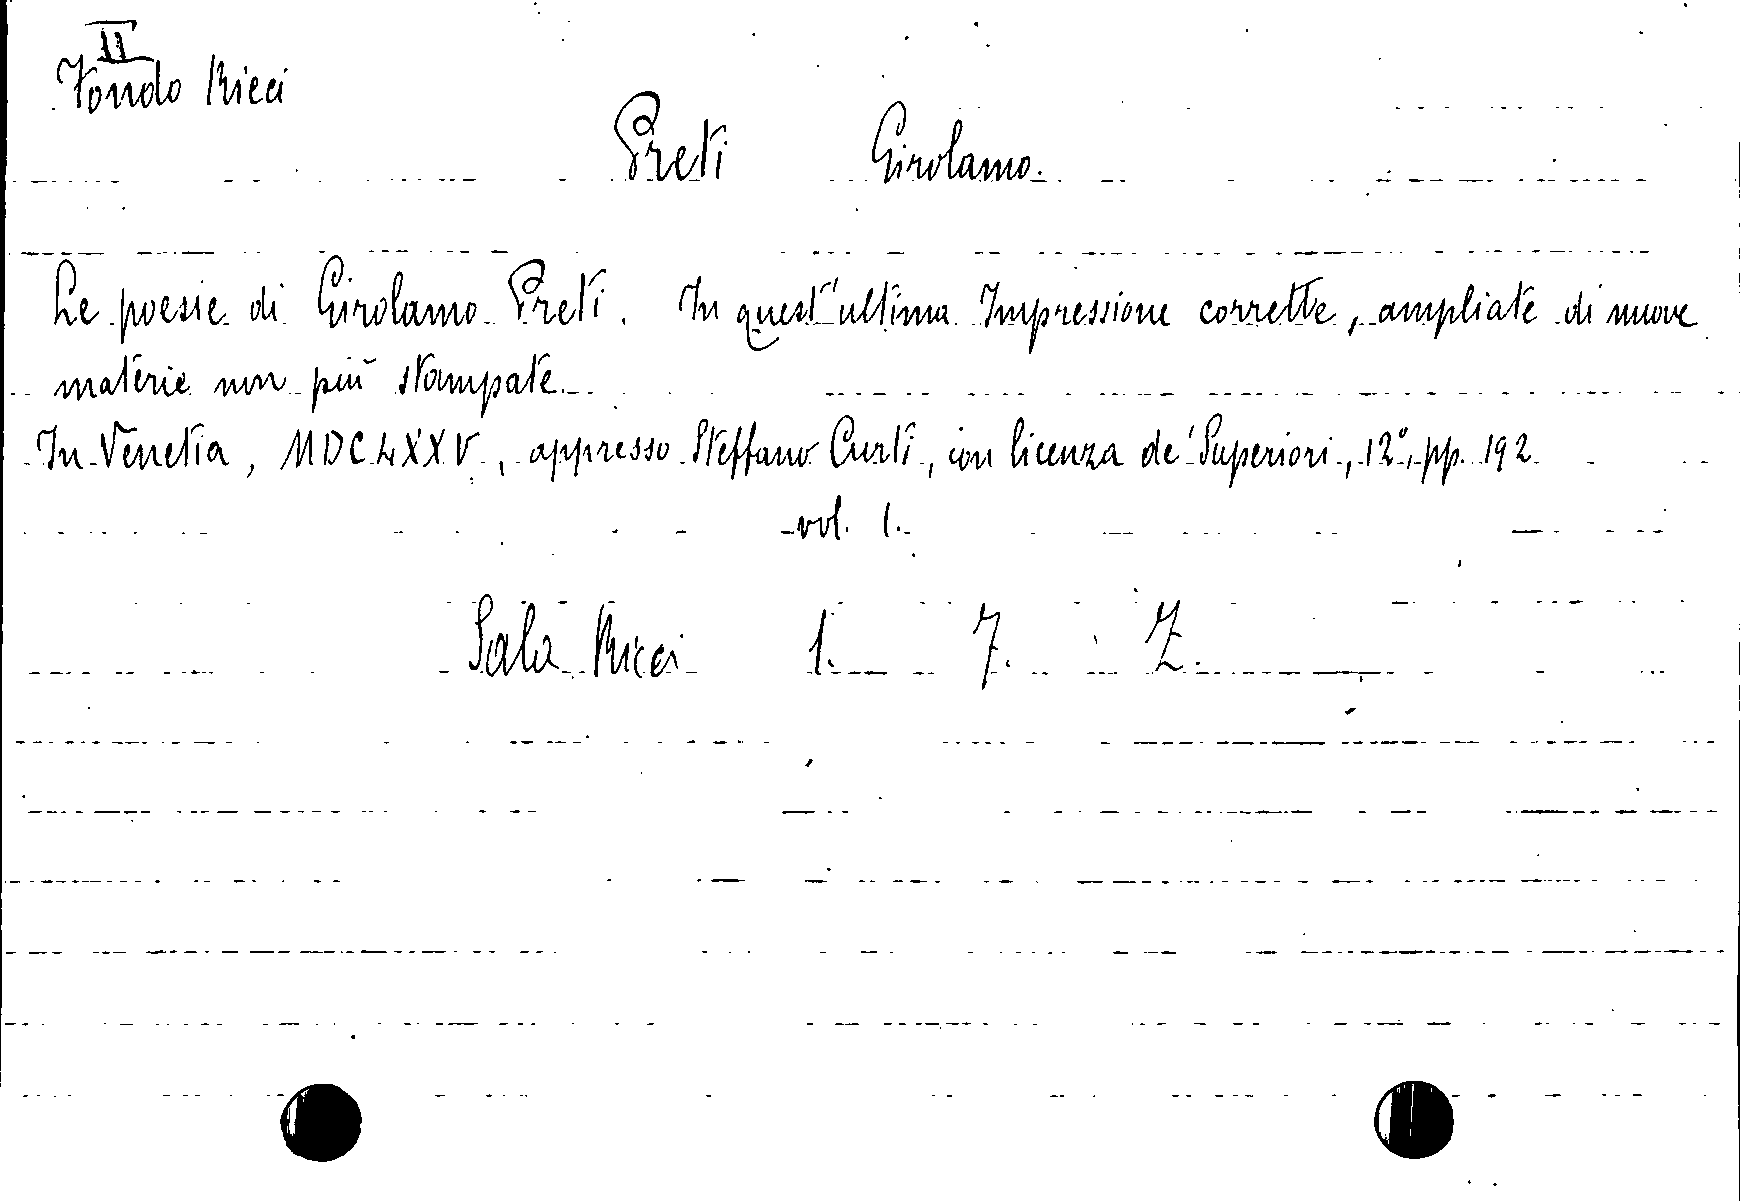 II
Fondo Ricci
Preti Girolamo.
Le poesie di Girolamo Preti. In quest'ultima Impressione corrette, ampliate di nuove
materie non più stampate.
In Venetia, MDCLXXV, appresso Steffano Curti, con licenza de' Superiori, 12°, pp. 192
vol. 1.
Sala Ricci 1. 7. Z.